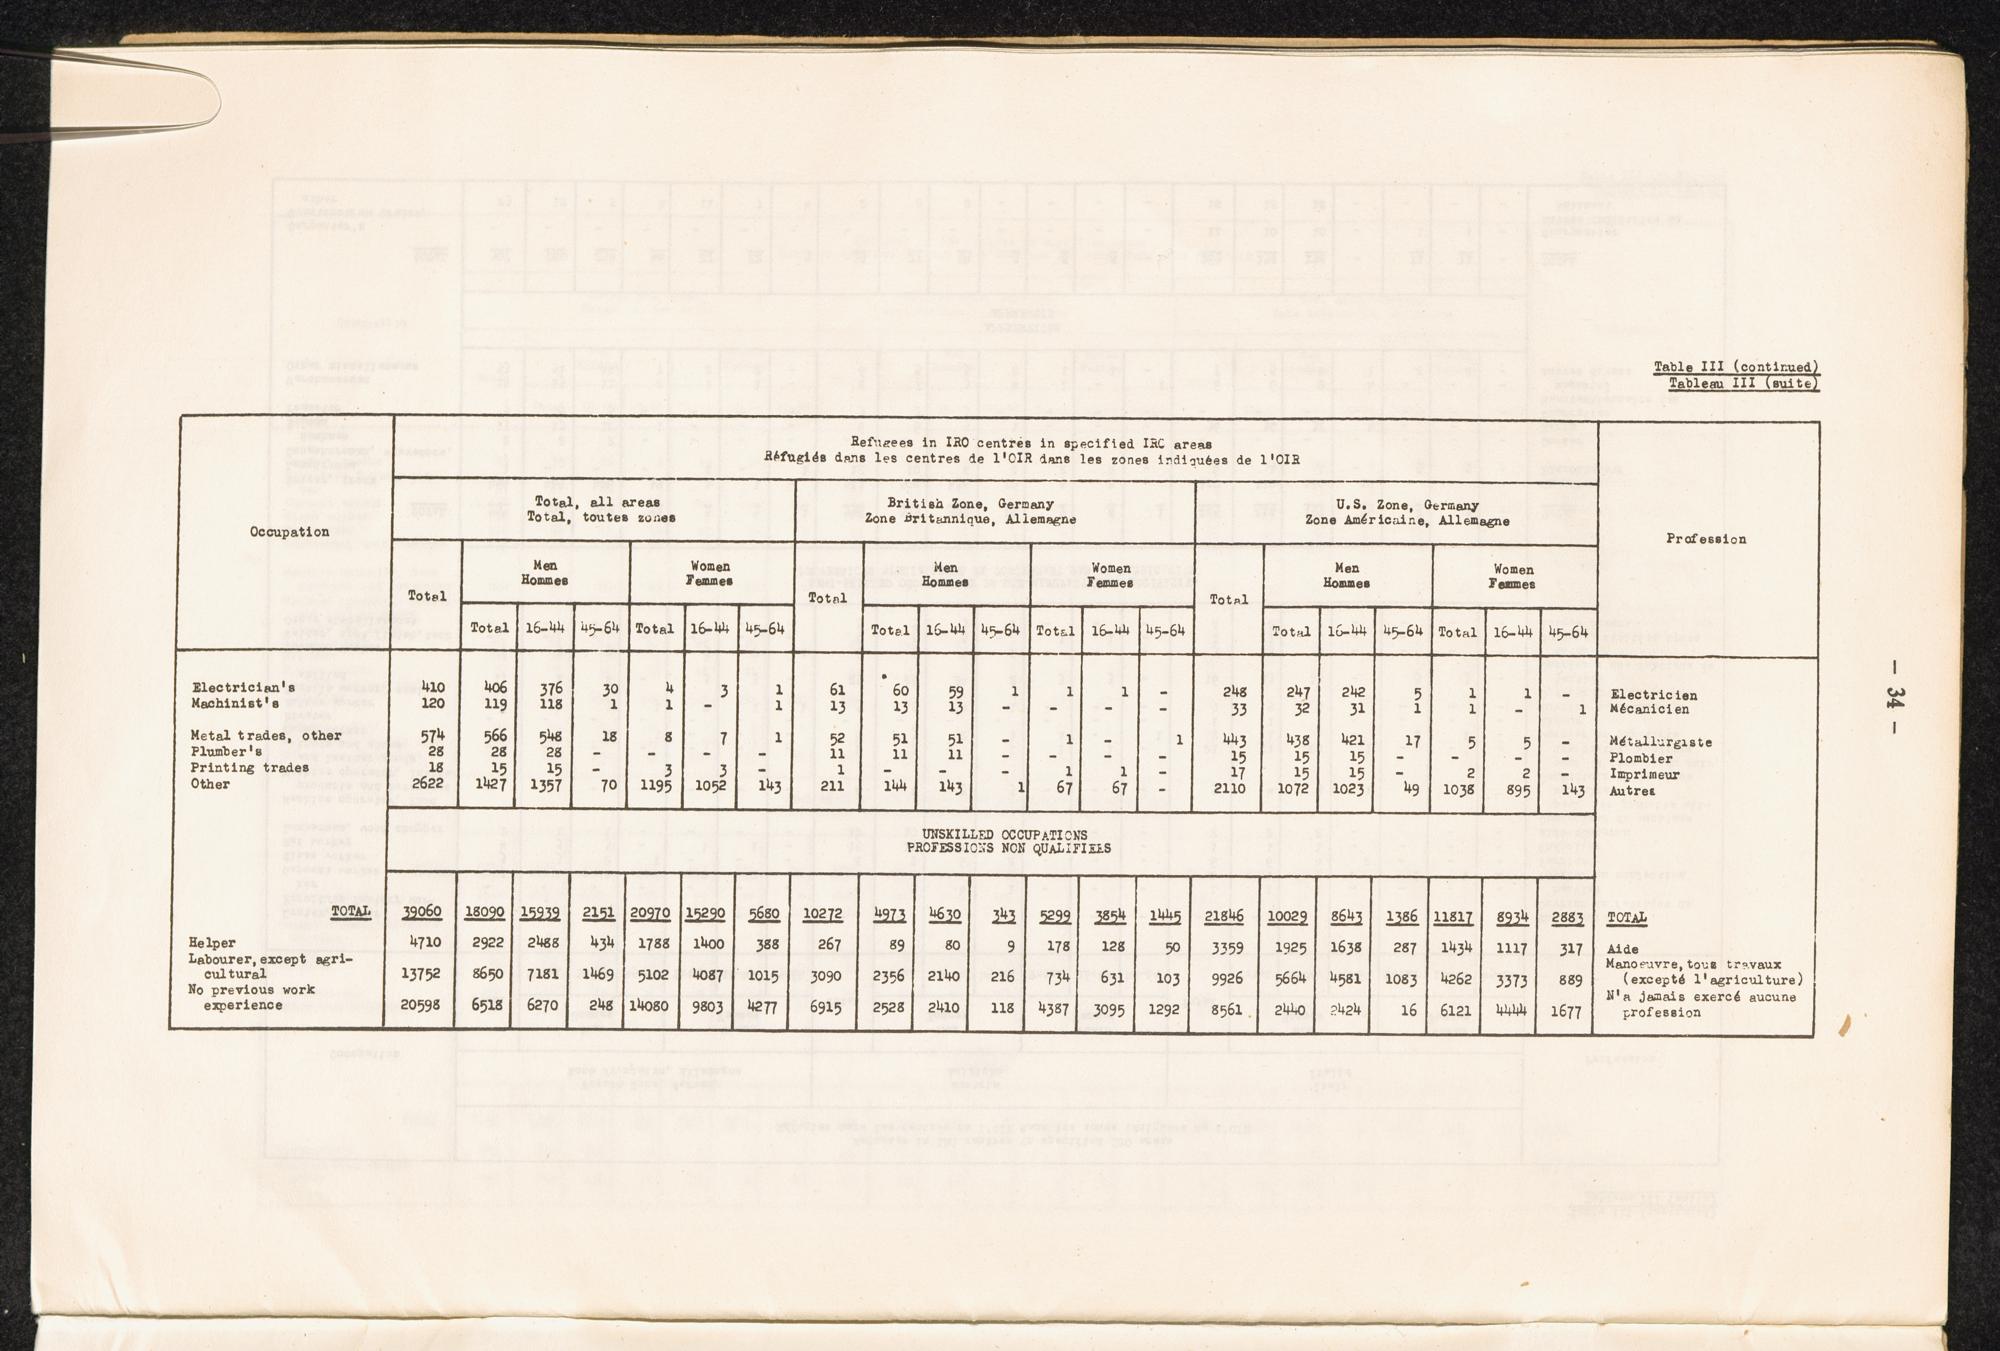 Table III (continued)
Tableau III (suite)
Refugees in IRO centres in specified IRO areas
Réfugiés dans les centres de l'OIR dans les zones indiquées de l'OIR
Total, all areas
Total, toutes zones
British Zone, Germany
Zone Britannique, Allemagne
U.S. Zone, Germany
Zone Américaine, Allemagne
Occupation
Profession
Total
Men
Hommes
Women
Femmes
Total
Men
Hommes
Women
Femmes
Total
Men
Hommes
Women
Femmes
Total 16-44 45-64 Total 16-44 45-64 Total 16-44 45-64 Total 16-44 45-64 Total 16-44 45-64 Total 16-44 45-64
Electrician's 410 406 376 30 4 3 1 61 60 59 1 1 1 - 248 247 242 5 1 1 - Electricien
Machinist's 120 119 118 1 1 - 1 13 13 13 - - - - 33 32 31 1 1 - 1 Mécanicien
Metal trades, other 574 566 548 18 8 7 1 52 51 51 - 1 - 1 443 438 421 17 5 5 - Métallurgiste
Plumber's 28 28 28 - - - - 11 11 11 - - - - 15 15 15 - - - - Plombier
Printing trades 18 15 15 - 3 3 - 1 - - - 1 1 - 17 15 15 - 2 2 - Imprimeur
Other 2622 1427 1357 70 1195 1052 143 211 144 143 1 67 67 - 2110 1072 1023 49 1038 895 143 Autres
UNSKILLED OCCUPATIONS
PROFESSIONS NON QUALIFIEES
TOTAL 39060 18090 15939 2151 20970 15290 5680 10272 4973 4630 343 5299 3854 1445 21846 10029 8643 1386 11817 8934 2883 TOTAL
Helper 4710 2922 2488 434 1788 1400 388 267 89 80 9 178 128 50 3359 1925 1638 287 1434 1117 317 Aide
Labourer, except agri-
Manoeuvre, tous travaux
cultural 13752 8650 7181 1469 5102 4087 1015 3090 2356 2140 216 734 631 103 9926 5664 4581 1083 4262 3373 889 (excepté l'agriculture)
No previous work
N'a jamais exercé aucune
experience 20598 6518 6270 248 14080 9803 4277 6915 2528 2410 118 4387 3095 1292 8561 2440 2424 16 6121 4444 1677 profession
- 34 -